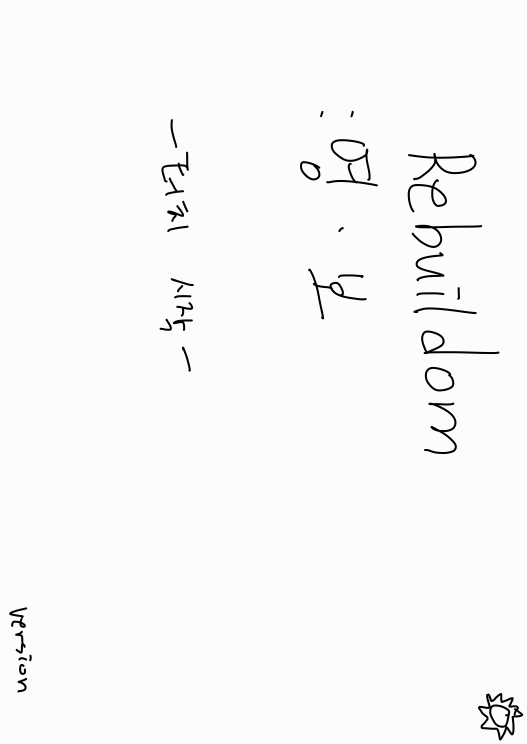 Rebuildom
: 영 · 보
- 터치 시작 -
version